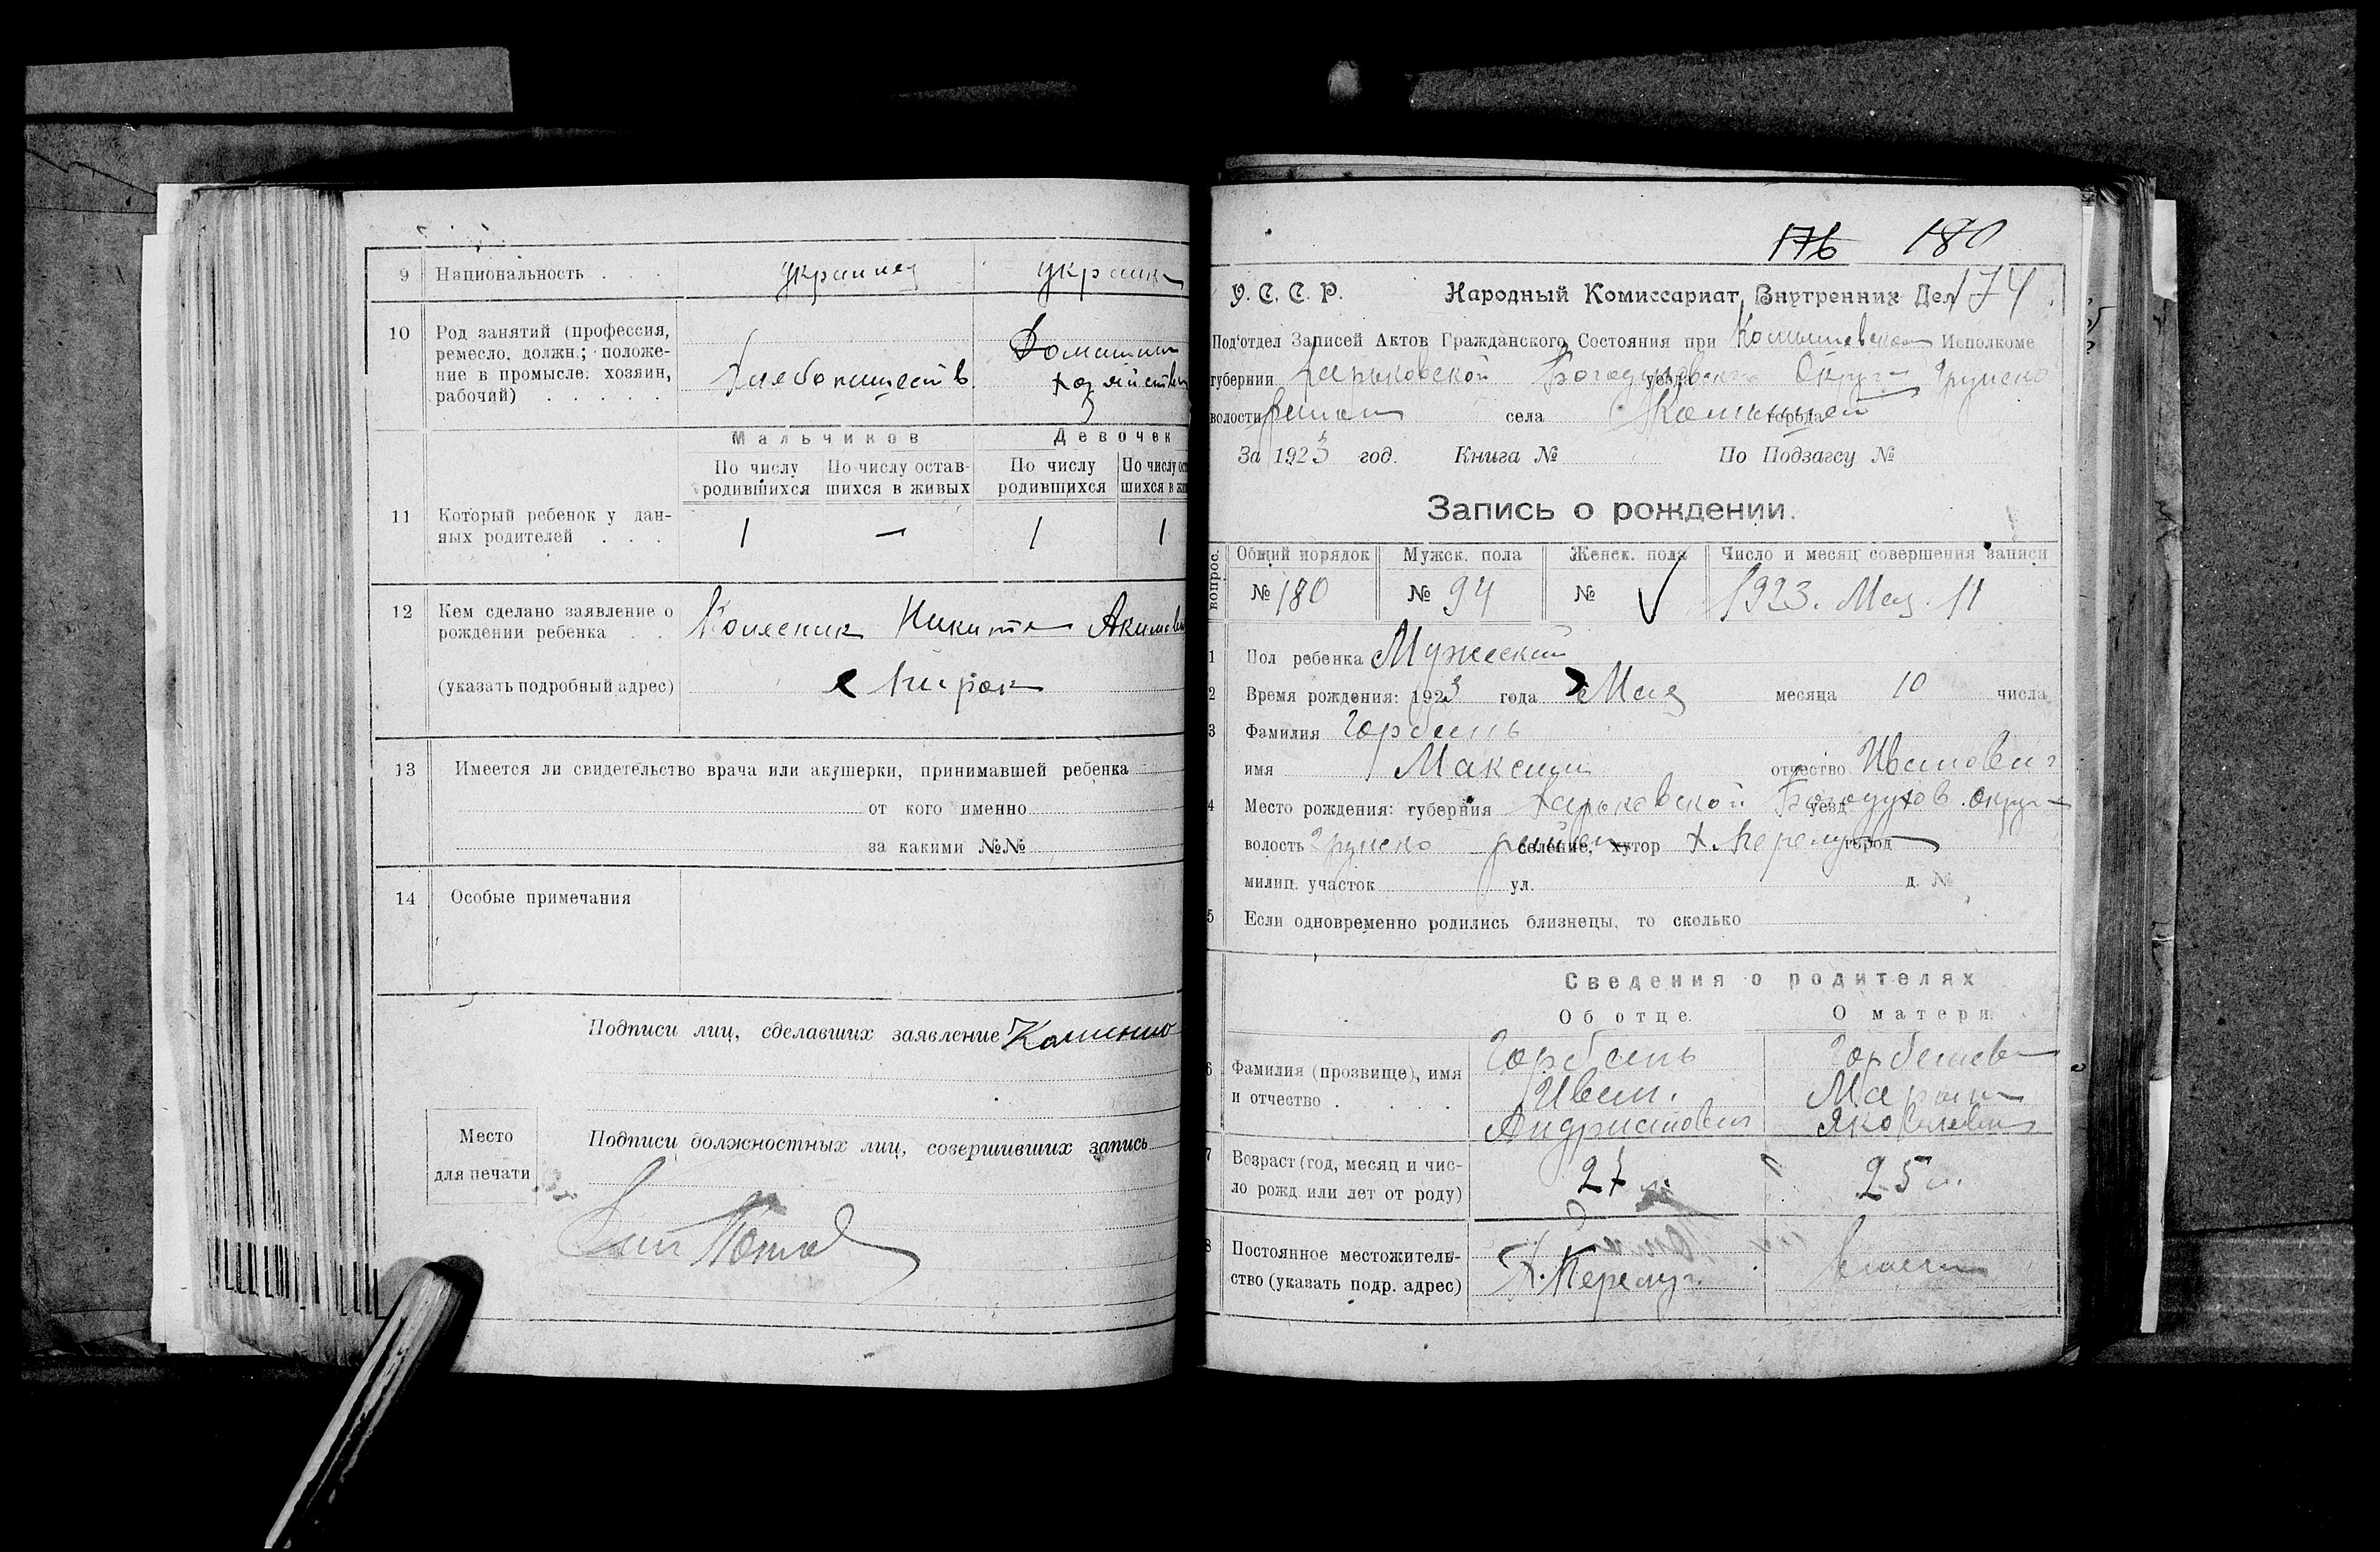 9 Национальность . . . украинец украинка
10 Род занятий (профессия,
ремесло, должн.; положе-
ние в промысле: хозяин,
рабочий) . . . . .
Хлебопашеств.
Домашнее
хозяйство
Мальчиков Девочек
По числу родившихся
По числу оставшихся в живых
По числу родившихся
По числу
11 Который ребенок у дан-
ных родителей . . .
1 — 1 1
12 Кем сделано заявление о
рождении ребенка . .
Колесник Никита Акимович
(указать подробный адрес)
13 Имеется ли свидетельство врача или акушерки, принимавшей ребенка
от кого именно
за какими №№
14 Особые примечания
Подписи лиц, сделавших заявление
Подписи должностных лиц, совершивших запись
Место
для печати
176 180
У. С. С. Р. Народный Комиссариат Внутренних Дел 174
Под'отдел Записей Актов Гражданского Состояния при Исполкоме
губернии Харьковской Богодуховского уезд Округа Грунско
волости села города
За 1923 год. Книга № По Подзагсу №
Запись о рождении.
вопрос.
Общий порядок Мужск. пола Женск. пола Число и месяц совершения записи
№ 180 № 94 № 1923. Мая 11
1 Пол ребенка Мужеский
2 Время рождения: 1923 года Мая месяца 10 числа
3 Фамилия Горбань
имя Максим отчество Иванович
4 Место рождения: губерния Харьковской уезд Богодухов. округа
волость Грунско район селение, хутор город
милиц. участок ул. д. №
5 Если одновременно родились близнецы, то сколько
Сведения о родителях
Об отце. О матери.
6 Фамилия (прозвище), имя
и отчество . . . . .
Горбань
Иван.
Андрианович
Мария
Яковлевна
7 Возраст (год, месяц и чис-
ло рожд. или лет от роду)
27 25
8 Постоянное местожитель-
ство (указать подр. адрес)